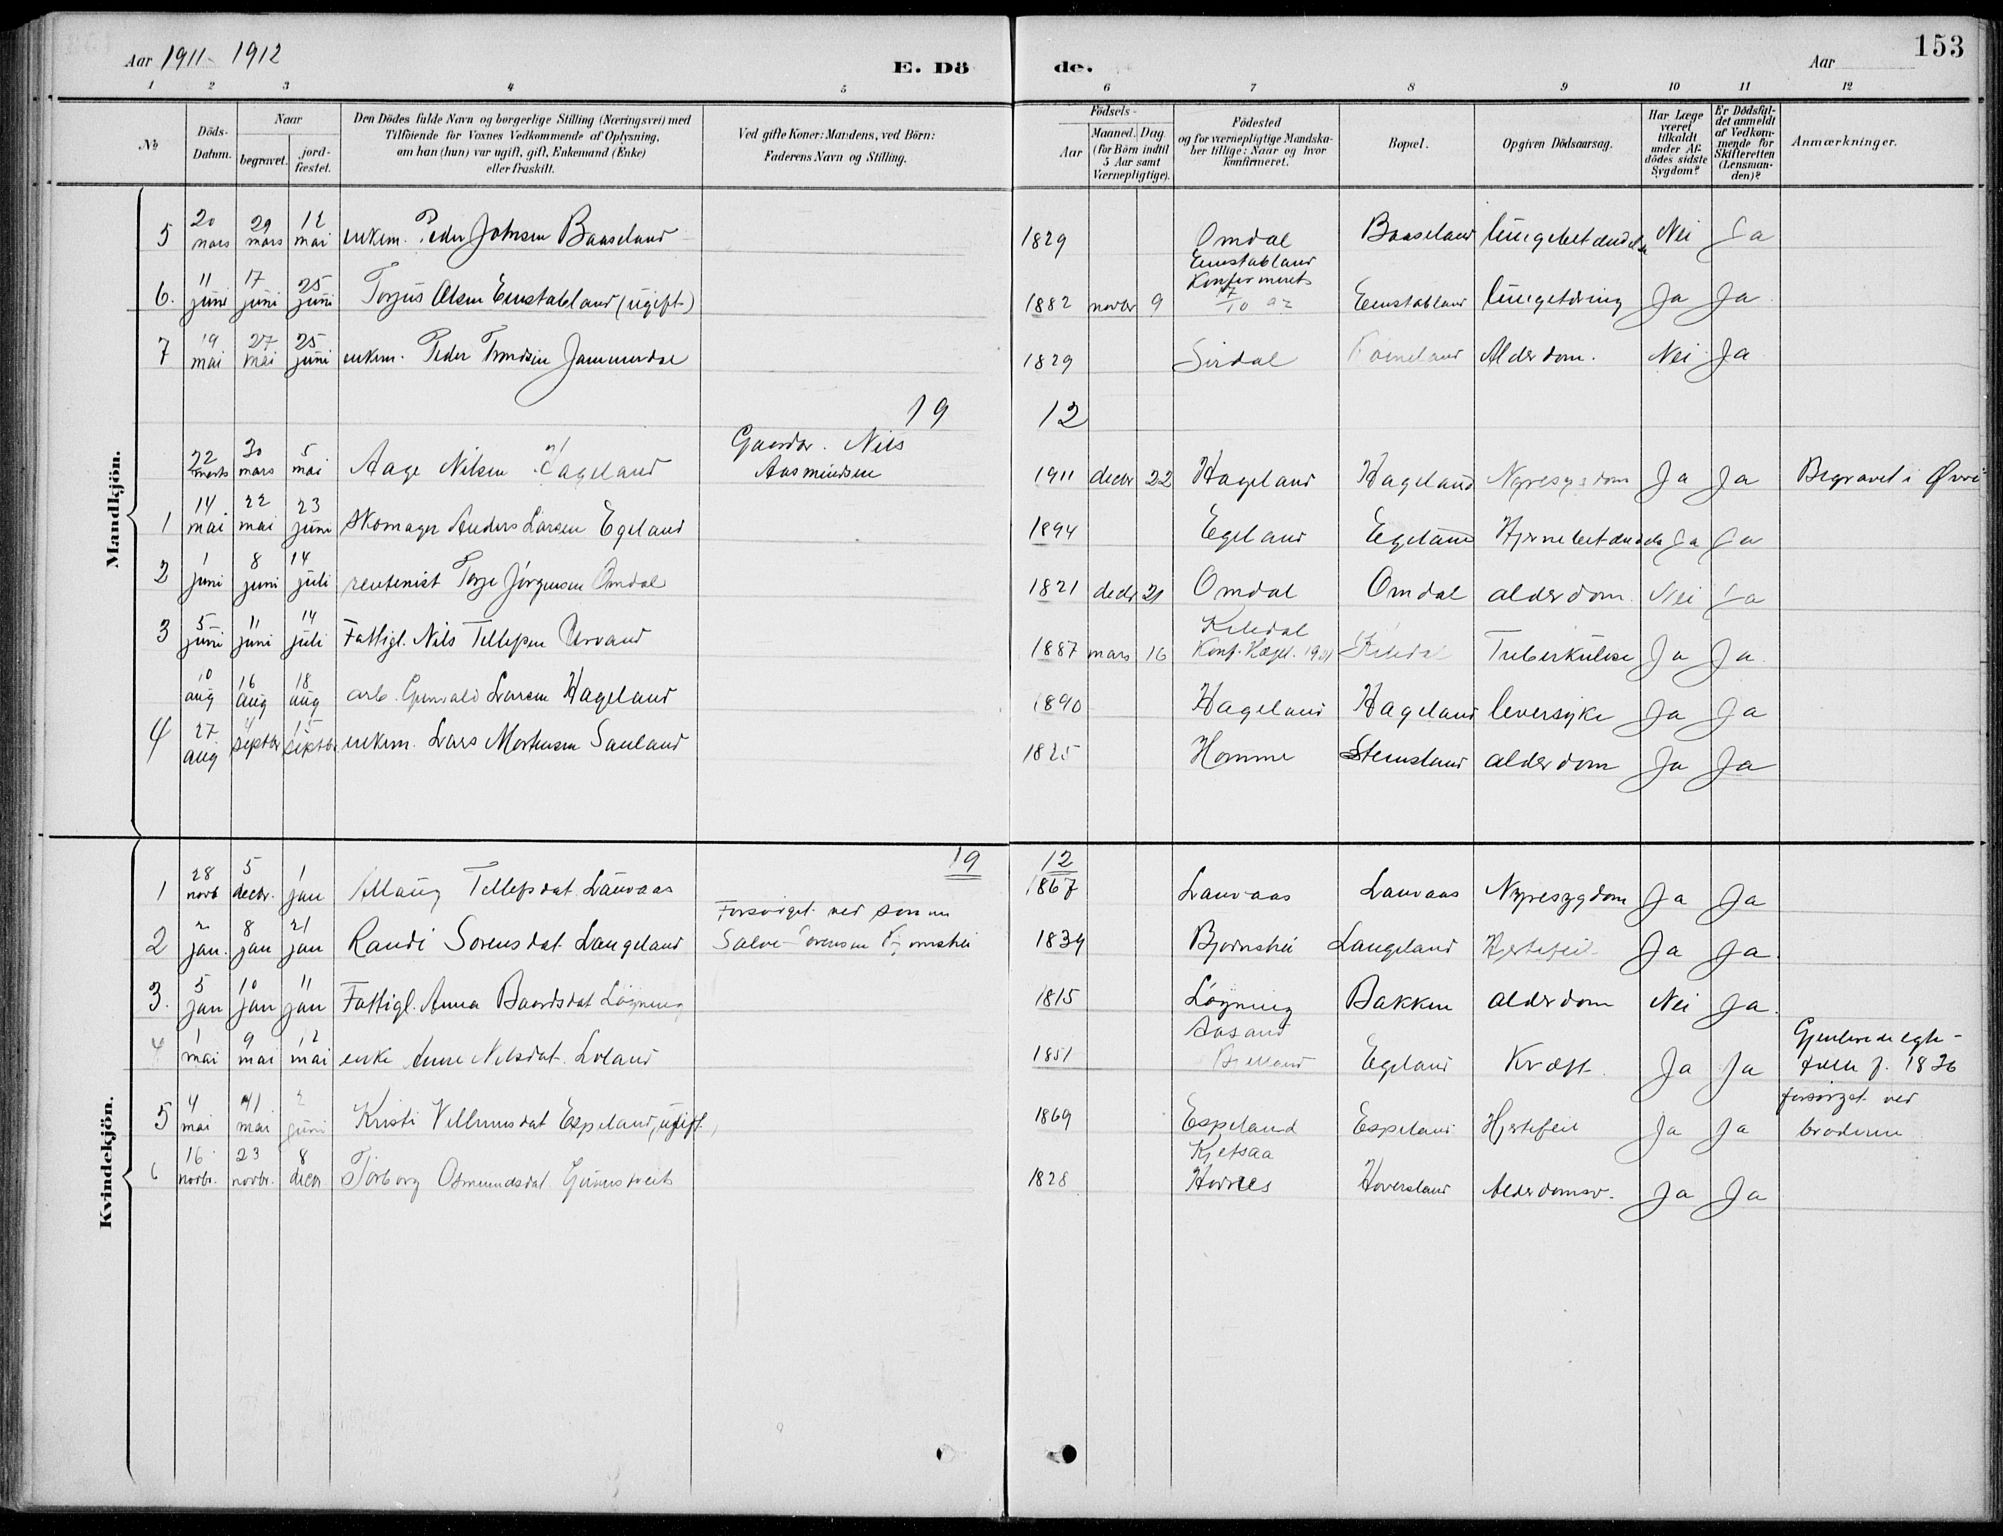 Aar 1911-1912
E. Dö
de.
Aar
153
1 2 3 4 5 6 7 8 9 10 11 12
No
Döds-Datum.
Naar
begravet.
jord-fæstet.
Den Dödes fulde Navn og borgerlige Stilling (Næringsvei) med
Tilföiende for Voxnes Vedkommende af Oplysning,
om han (hun) var ugift, gift, Enkemand (Enke)
eller fraskilt.
Ved gifte Koner: Mandens, ved Börn:
Faderens Navn og Stilling.
Födsels-
Aar
Maaned. Dag
(for Börn indtil
5 Aar samt
Værnepligtige).
Födested
og for værnepligtige Mandska-
ber tillige: Naar og hvor
konfirmeret.
Bopæl.
Opgiven Dödsaarsag.
Har Læge
været
tilkaldt
under Af-
dödes sidste
Sygdom?
Er Dödsfal-
det anmeldt
af Vedkom-
mende for
Skifteretten
(Lensman-
den)?
Anmærkninger.
Mandkjön.
5 20 mars 29 mars 12 mai enkem. Peder Johnsen Baaseland 1829 Omdal Baaseland lungebetændelse Nei Ja
6. 11 juni 17 juni 25 juni Torjus Olsen Eenstabland (ugift) 1882 novbr 9 Eenstabland Konfirmeret 17/10 97 Eenstabland lungetæring Ja Ja
7 19 mai 27 mai 25 juni enkem. Peder Jammerdal 1829 Sirdal Alderdom. Nei Ja
19 12
22 marts 30 mars 5 mai Aage Nilsen Hageland Gaardbr. Nils Aasmundsen 1911 decbr 22 Hageland Hageland Nyresygdom Ja Ja Begravet i
1 14 mai 22 mai 23 juni skomager Anders Larsen Egeland 1894 Egeland Egeland Hjernebetændelse Ja Ja
2 1 juni 8 juni 14 juli rentenist Terje Jörgensen Omdal 1821 decbr 21 Omdal Omdal alderdom Nei Ja
3 5 juni 11 juni 14 juli Fattigl. Nils Tellefsen 1887 mars 16 Kiledal Konf. Hægel. 1901 Kiledal Tuberkulose Ja Ja
10 aug 16 aug 18 aug arb. Gunvald Larsen Hageland 1890 Hageland Hageland leversyke Ja Ja
4 27 aug 4 septbr 15 septbr enkem. Lars Mortensen Sauland 1825 Homme Stensland alderdom Ja Ja
Kvindekjön.
19 12
1 28 novb 5 decbr. 1 jan Tellefsdat. Lauvaas 1867 Lauvaas Lauvaas Nyresygdom Ja Ja
2 2 jan. 8 jan 21 jan Randi Sorensdat Langeland Forsörget ved sönnen Salve Sorensen Bjornstøi 1834 Langeland Hjertefeil Ja Ja
3. 5 jan 10 jan 11 jan Fattigl. Anna Baardsdat Löyning 1815 Löyning Bakken alderdom Nei Ja
4 1 mai 9 mai 12 mai enke Anne Nilsdat. Loland 1851 Aasand Bjelland Egeland Kræft Ja Ja Gjenlevende egtefelle f. 1836
5 4 mai 11 mai 2 juni Kristi Espeland, ugift, 1869 Espeland Espeland Hjertefeil Ja Ja forsörget ved broderen
6 16 novbr. 23 novbr. 8 decbr Torborg Osmundsdat. 1828 Kjetsaa Hornes Hoversland Alderdomsv. Ja Ja